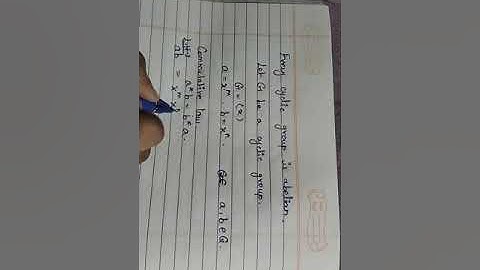 Every cyclic group is abelian.
Let G be a cyclic group.
G = (x)
a = x^m, b = x^n. a, b ∈ G.
Commutative law
a * b = b * a.
LHS
ab = x^m x^n